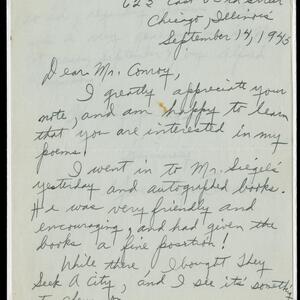 623 East 63rd Street
Chicago, Illinois
September 14, 1945
Dear Mr. Conroy,
I greatly appreciate your
note, and am happy to learn
that you are interested in my
poems!
I went in to Mr. Siegel's
yesterday and autographed books.
He was very friendly and
encouraging, and had given the
books a fine position!
While there I bought They
Seek A City, and I see it's